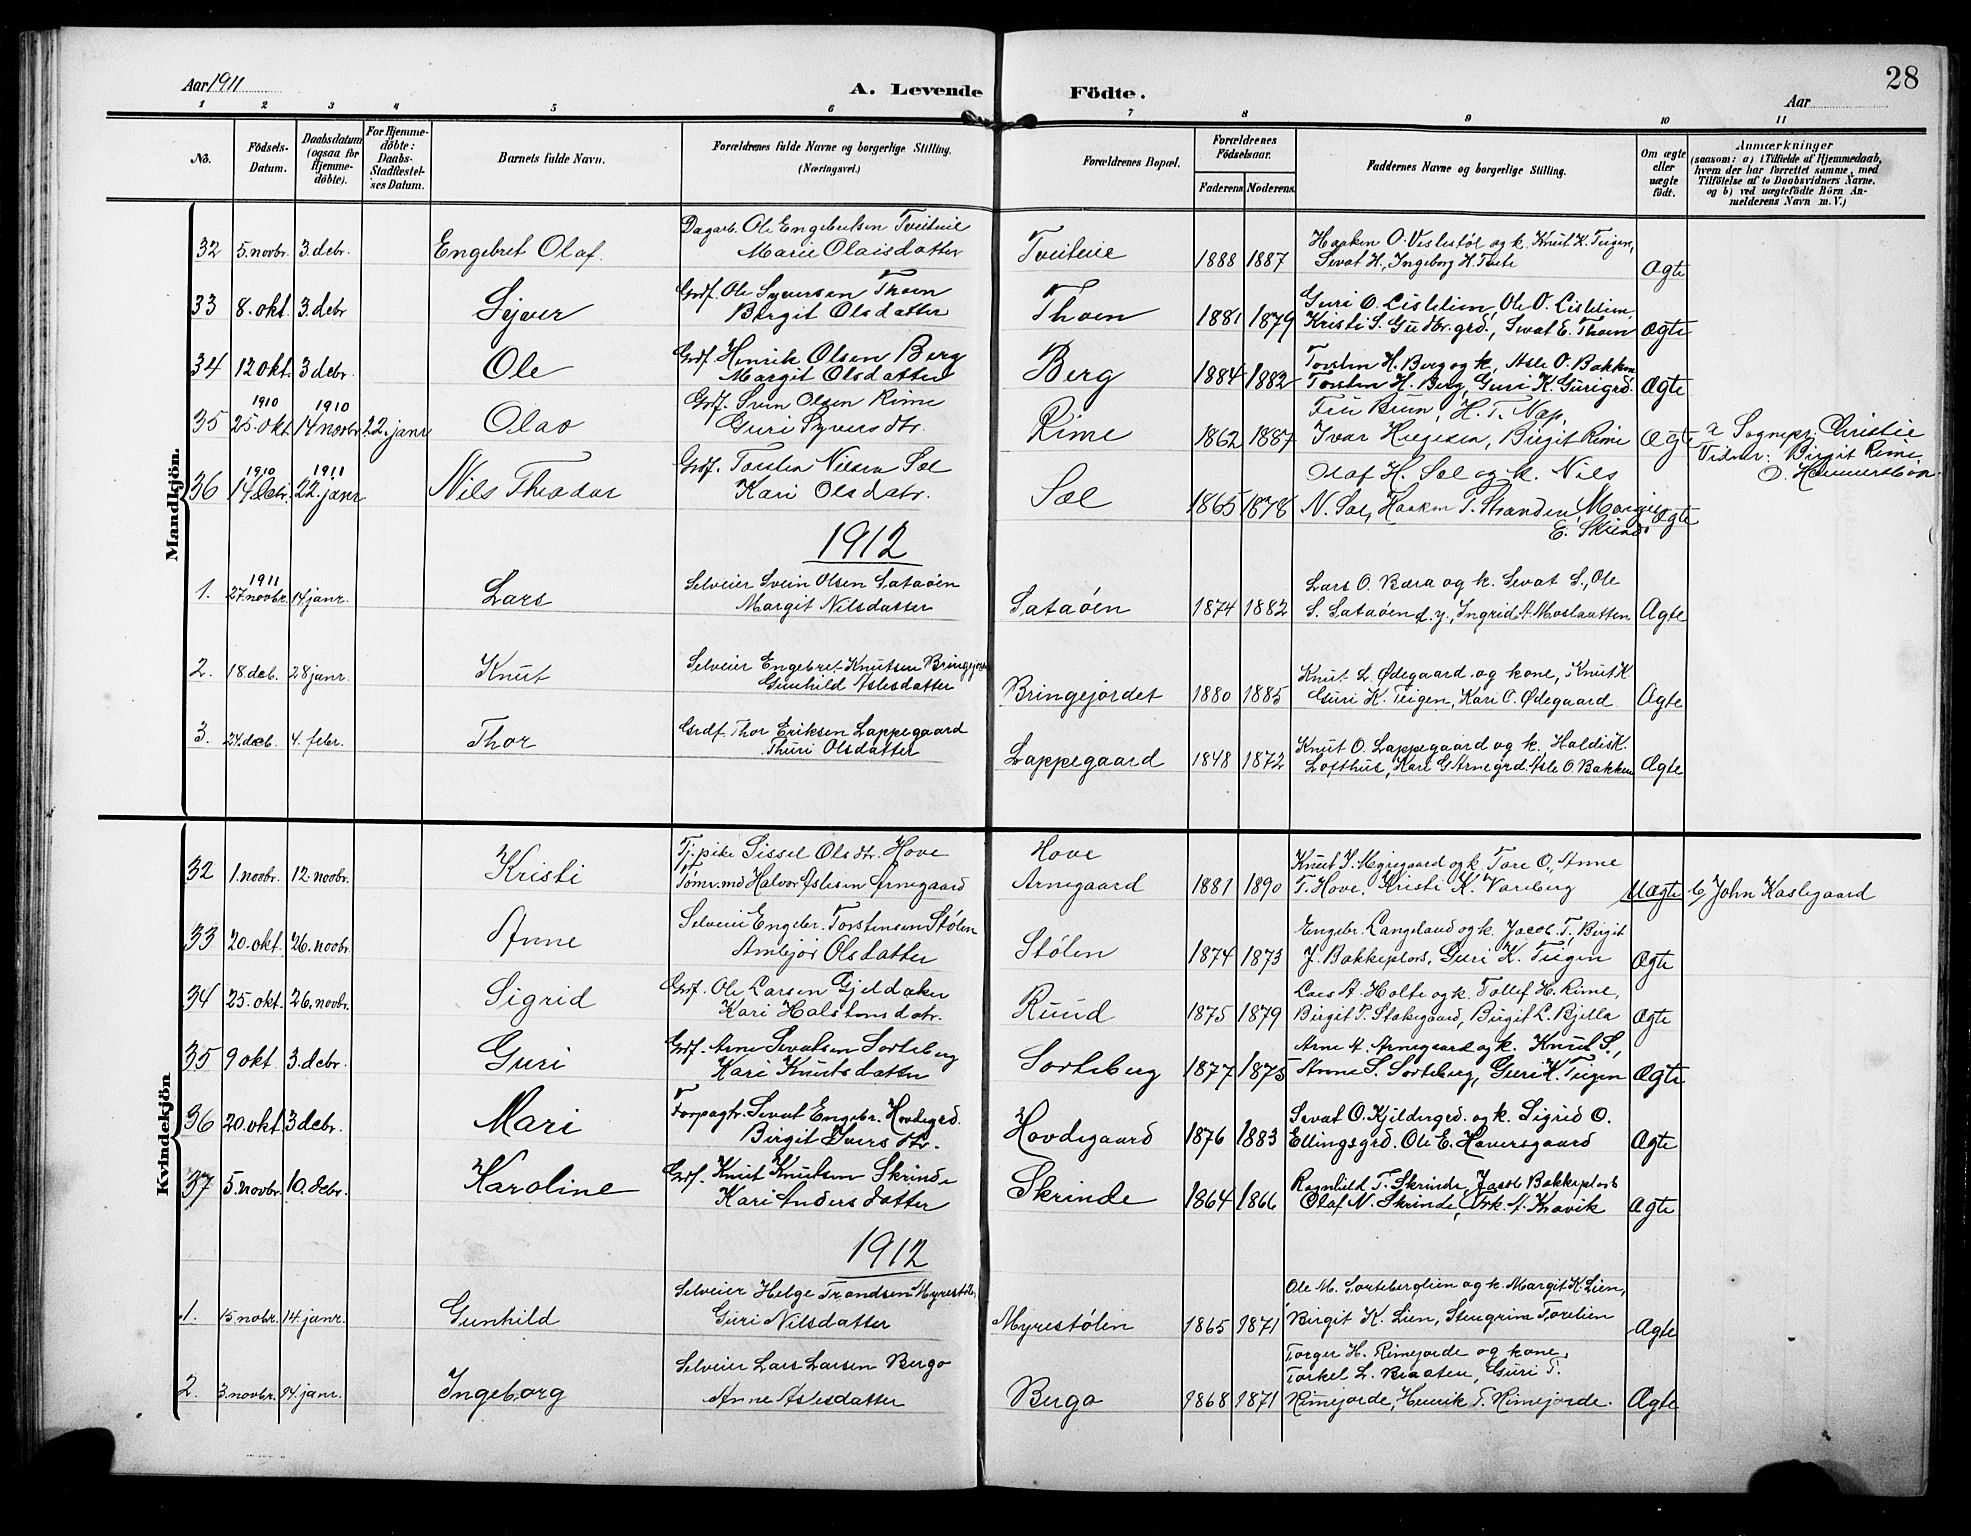 28
Aar 1911
A. Levende Födte.
Aar
1 2 3 4 5 6 7 8 9 10 11
No.
Födsels-Datum.
Daabsdatum (ogsaa for Hjemme-döbte).
For Hjemme-döbte: Daabs-Stadfæstel-ses Datum.
Barnets fulde Navn.
Forældrenes fulde Navne og borgerlige Stilling.
(Næringsvei.)
Forældrenes Bopæl.
Forældrenes Födselsaar.
Faderens. Moderens.
Faddernes Navne og borgerlige Stilling.
Om ægte eller uægte födt.
Anmærkninger
(saasom: a) i Tilfælde af Hjemmedaab,
hvem der har forrettet samme, med
Tilföielse af to Daabsvidners Navne,
og b) ved uægtefödte Börn An-
melderens Navn m. V.)
Mandkjön.
32 5. novbr. 3. debr. Engebret Olaf Dagarb. Ole Engebretsen Tveiteie
Marie Olaisdatter Tveiteie 1888 1887 Haaken O. Veslestøl og k. Knut K. Teigen,
Sevat H., Ingeborg H. Tveite Ægte
33 8. okt. 3. debr Sejver Grdf. Ole Syversen Thoen
Birgit Olsdatter Thoen 1881 1879 Guri O. Lislelien, Ole O. Lislelien,
Kristi S. Gudbr.grd., Sevat E. Thoen Ægte
34 12 okt. 3 debr. Ole Grdf. Henrik Olsen Berg
Margit Olsdatter Berg 1884 1882 Torsten H. Berg og k., Asle O. Bakken
Torsten H. Berg, Guri K. Gurigrd. Ægte
35 1910 25. okt. 1910 14 novbr. 22. janr Olav Grdf. Svein Olsen Rime
Guri Syversdtr. Rime 1862 1887 Fru Brun, H. T. Næp,
Ivar Helgesen, Birgit Rime Ægte Sognepr. Christie
Vidner: Birgit Rime
O. Hammersbøn.
36 1910 14 debr. 1911 22. janr Nils Theodor Grdf. Torsten Nilsen Sæl
Kari Olsdatr. Sæl 1865 1878 Olaf H. Sæl og k. Nils
N. Sæl, Haaken T. Stranden, Margit
E. Skrinde Ægte
1912
1. 1911 27. novbr. 14 janr. Lars Selveier Svein Olsen Sataøen
Margit Nilsdatter Sataøen 1874 1882 Lars O. Bæra og k. Sevat S., Ole
S. Sataøen d. y., Ingrid A. Moslaatten Ægte
2. 18. deb. 28 janr. Knut Selveier Engebret Knutsen Bringejor
Gunhild Aslesdatter Bringejordet 1880 1885 Knut L. Ødegaard og kone, Knut K.
Guri K. Teigen, Kari O. Ødegaard Ægte
3. 24. deb. 4. febr. Thor Grdf. Thor Eriksen Lappegaard
Thuri Olsdatter Lappegaard 1848 1872 Knut O. Lappegaard og k. Haldis K.
Lofthus, Kari G. Arnegrd. Asle O. Bakken Ægte
Kvindekjön
32 1. novbr. 12. novbr. Kristi Tj. pike Sissel Olsdtr. Hove
Tømr.md Halvor Aslesen Arnegaard Hove
Arnegaard 1881 1890 Knut S. Myregaard og k. Tore O., Anne
T. Hove, Kristi K. Vareberg Uægte b) John Kaslegaard
33 20. okt. 26. novbr. Anne Selveier Engebr. Torstensen Stølen
Ambjør Olsdatter Stølen 1874 1873 Engebr. Langeland og k. Jacob T., Birgit
J. Bakkeplass, Guri K. Teigen Ægte
34 25. okt. 26. novbr. Sigrid Grdf. Ole Larsen Gjeldaker
Kari Halstensdatr. Ruud 1875 1879 Lars A. Holte og k. Tollef H. Rime,
Birgit P. Stakegaard, Birgit L. Bjella Ægte
35 9 okt 3. debr. Guri Grdf. Arne Sevatsen Sorteberg
Kari Knutsdatter Sorteberg 1877 1875 Arne A. Arnegaard og k. Knut S.,
Anne S. Sorteberg, Guri K. Teigen Ægte
36 20. okt. 3 debr. Mari Forpagtr. Sevat Engebr. Hovdegrd.
Birgit Iversdtr. Hovdegaard 1876 1883 Sevat O. Kjildergrd. og k. Sigrid O.
Ellingsgrd. Ole E. Haversgaard Ægte
37 5. novbr. 10. debr. Karoline Grdf. Knut Knutsen Skrinde
Kari Andersdatter Skrinde 1864 1866 Ragnhild T. Skrinde, Jacob Bakkeplass
Olaf N. Skrinde, Frk. A. Kravik Ægte
1912
1. 15. nobr. 14. janr. Gunhild Selveier Helge Trondsen Myrestøl.
Guri Nilsdatter Myrestølen 1865 1871 Ole M. Sorteberglien og k. Margit K. Lien,
Birgit K. Lien, Stengrim Torelien Ægte
2. 3. novbr. 14 janr. Ingeborg Selveier Lars Larsen Bergo
Anne Aslesdatter Bergo 1868 1871 Torger H. Rimejorde og kone,
Torkel L. Braaten, Guri T.
Rimejorde, Henrik T. Rimejorde. Ægte